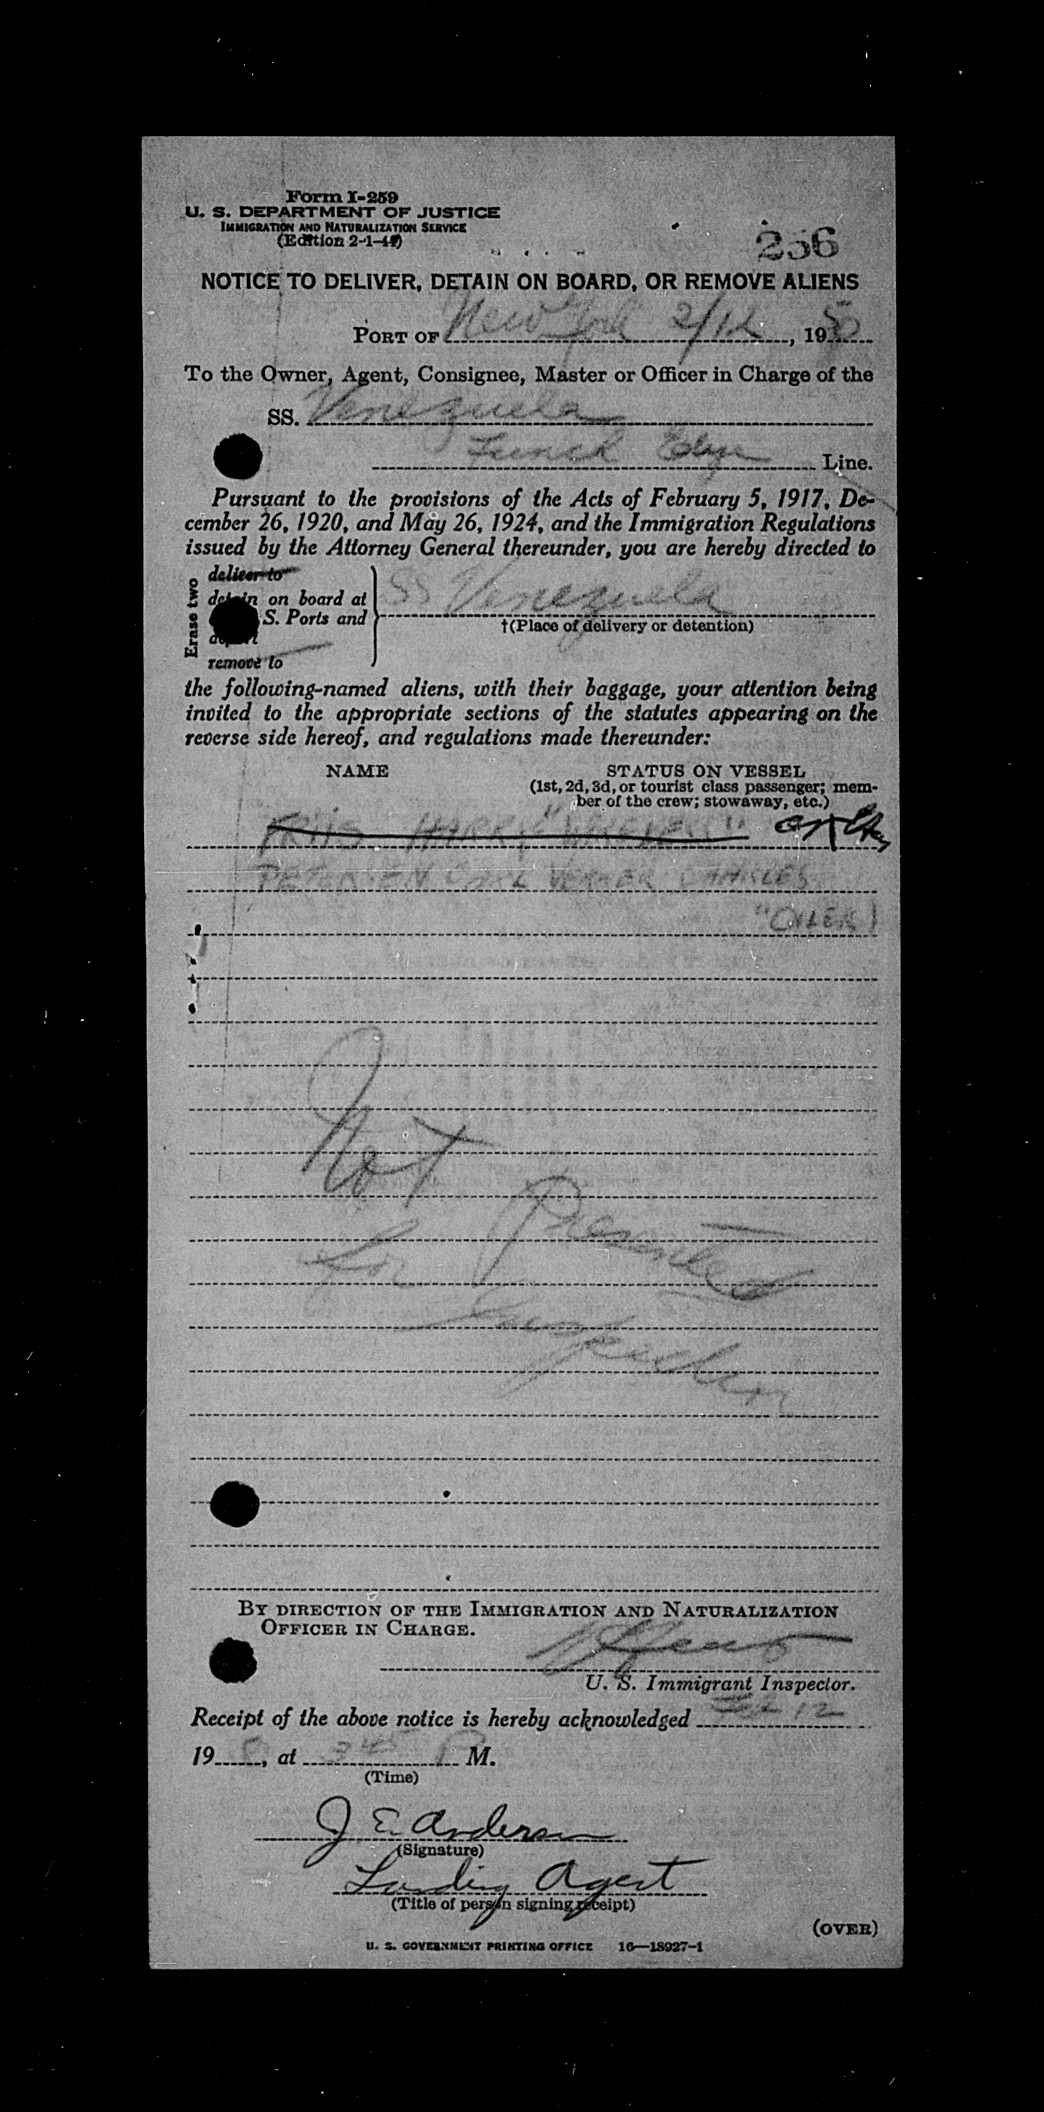 Form I-259
U. S. DEPARTMENT OF JUSTICE
IMMIGRATION AND NATURALIZATION SERVICE
(Edition 2-1-4)
256
NOTICE TO DELIVER, DETAIN ON BOARD, OR REMOVE ALIENS
PORT OF New York 2/12, 1950
To the Owner, Agent, Consignee, Master or Officer in Charge of the
SS. Venezuela
Funch Edye Line.
Pursuant to the provisions of the Acts of February 5, 1917, De-
cember 26, 1920, and May 26, 1924, and the Immigration Regulations
issued by the Attorney General thereunder, you are hereby directed to
Erase two
deliver to
detain on board at
S. Ports and
deport
remove to
SS Venezuela
†(Place of delivery or detention)
the following-named aliens, with their baggage, your attention being
invited to the appropriate sections of the statutes appearing on the
reverse side hereof, and regulations made thereunder:
NAME STATUS ON VESSEL
(1st, 2d, 3d, or tourist class passenger; mem-
ber of the crew; stowaway, etc.)
FRIIS HARRY
PETERSEN CARL VERNER CHARLES
"OILER"
Not
Presented
for
Inspection
BY DIRECTION OF THE IMMIGRATION AND NATURALIZATION
OFFICER IN CHARGE.
U. S. Immigrant Inspector.
Receipt of the above notice is hereby acknowledged Feb 12
19 , at 3 45 P M.
(Time)
J E Anderson
(Signature)
Landing Agent
(Title of person signing receipt)
(OVER)
U. S. GOVERNMENT PRINTING OFFICE 16—18927-1